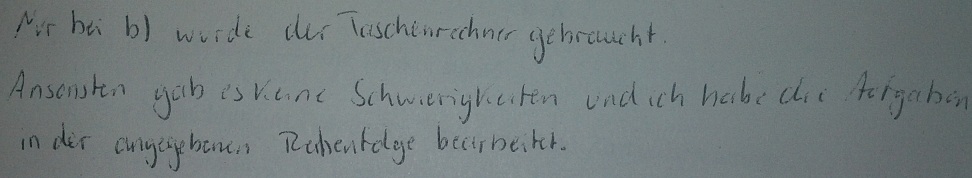 Nur bei b) wurde der Taschenrechner gebraucht.
Ansonsten gab es keine Schwierigkeiten und ich habe die Aufgaben
in der angegebenen Reihenfolge bearbeitet.